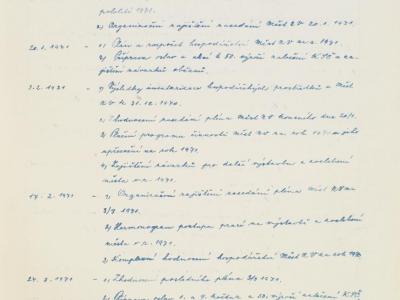 pololetí 1971.
2) Organizační zajištění zasedání Měst NV 20. 1. 1971.
20. 1. 1971 - 1) Plán a rozpočet hospodaření Měst NV na r. 1971.
2) Příprava oslav a akcí k 50. výročí založení KSČ a za-
jištění závazků občanů.
3. 2. 1971 - 1) Výsledky inventarizace hospodářských prostředků u Měst
NV k 31. 12. 1970.
2) Zhodnocení zasedání pléna Měst NV konaného dne 20/1.
3) Plnění programu činnosti Měst NV na rok 1970 a jeho
upřesnění na rok 1971.
4) Zajištění závazků pro další výstavbu a zvelebení
města v r. 1971.
17. 2. 1971 - 1) Organizační zajištění zasedání pléna Měst NV na
3/3 1971.
2) Harmonogram postupu prací na výstavbě a zvelebení
města v r. 1971.
3) Komplexní hodnocení hospodaření Měst NV na rok 1970
24. 3. 1971 - 1) Zhodnocení posledního pléna 3/3 1971.
2) Příprava oslav 1. a 9. května a 50. výročí založení KSČ